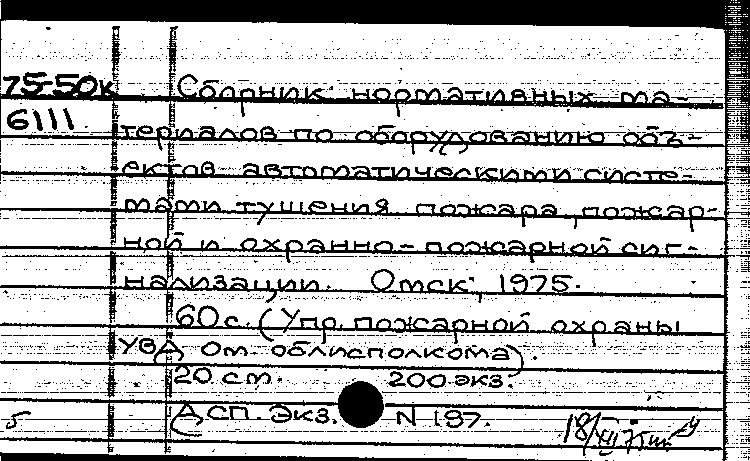 75-50к Сборник нормативных ма-
6111 териалов по оборудованию объ-
ектов автоматическими систе-
мами тушения пожара, пожар-
ной и охранно-пожарной сиг-
нализации. Омск, 1975.
60 с. (Упр. пожарной охраны
УВД Ом. облисполкома).
20 см. 200 экз.
ДСП. Экз. N 197.
5 18/XII 75